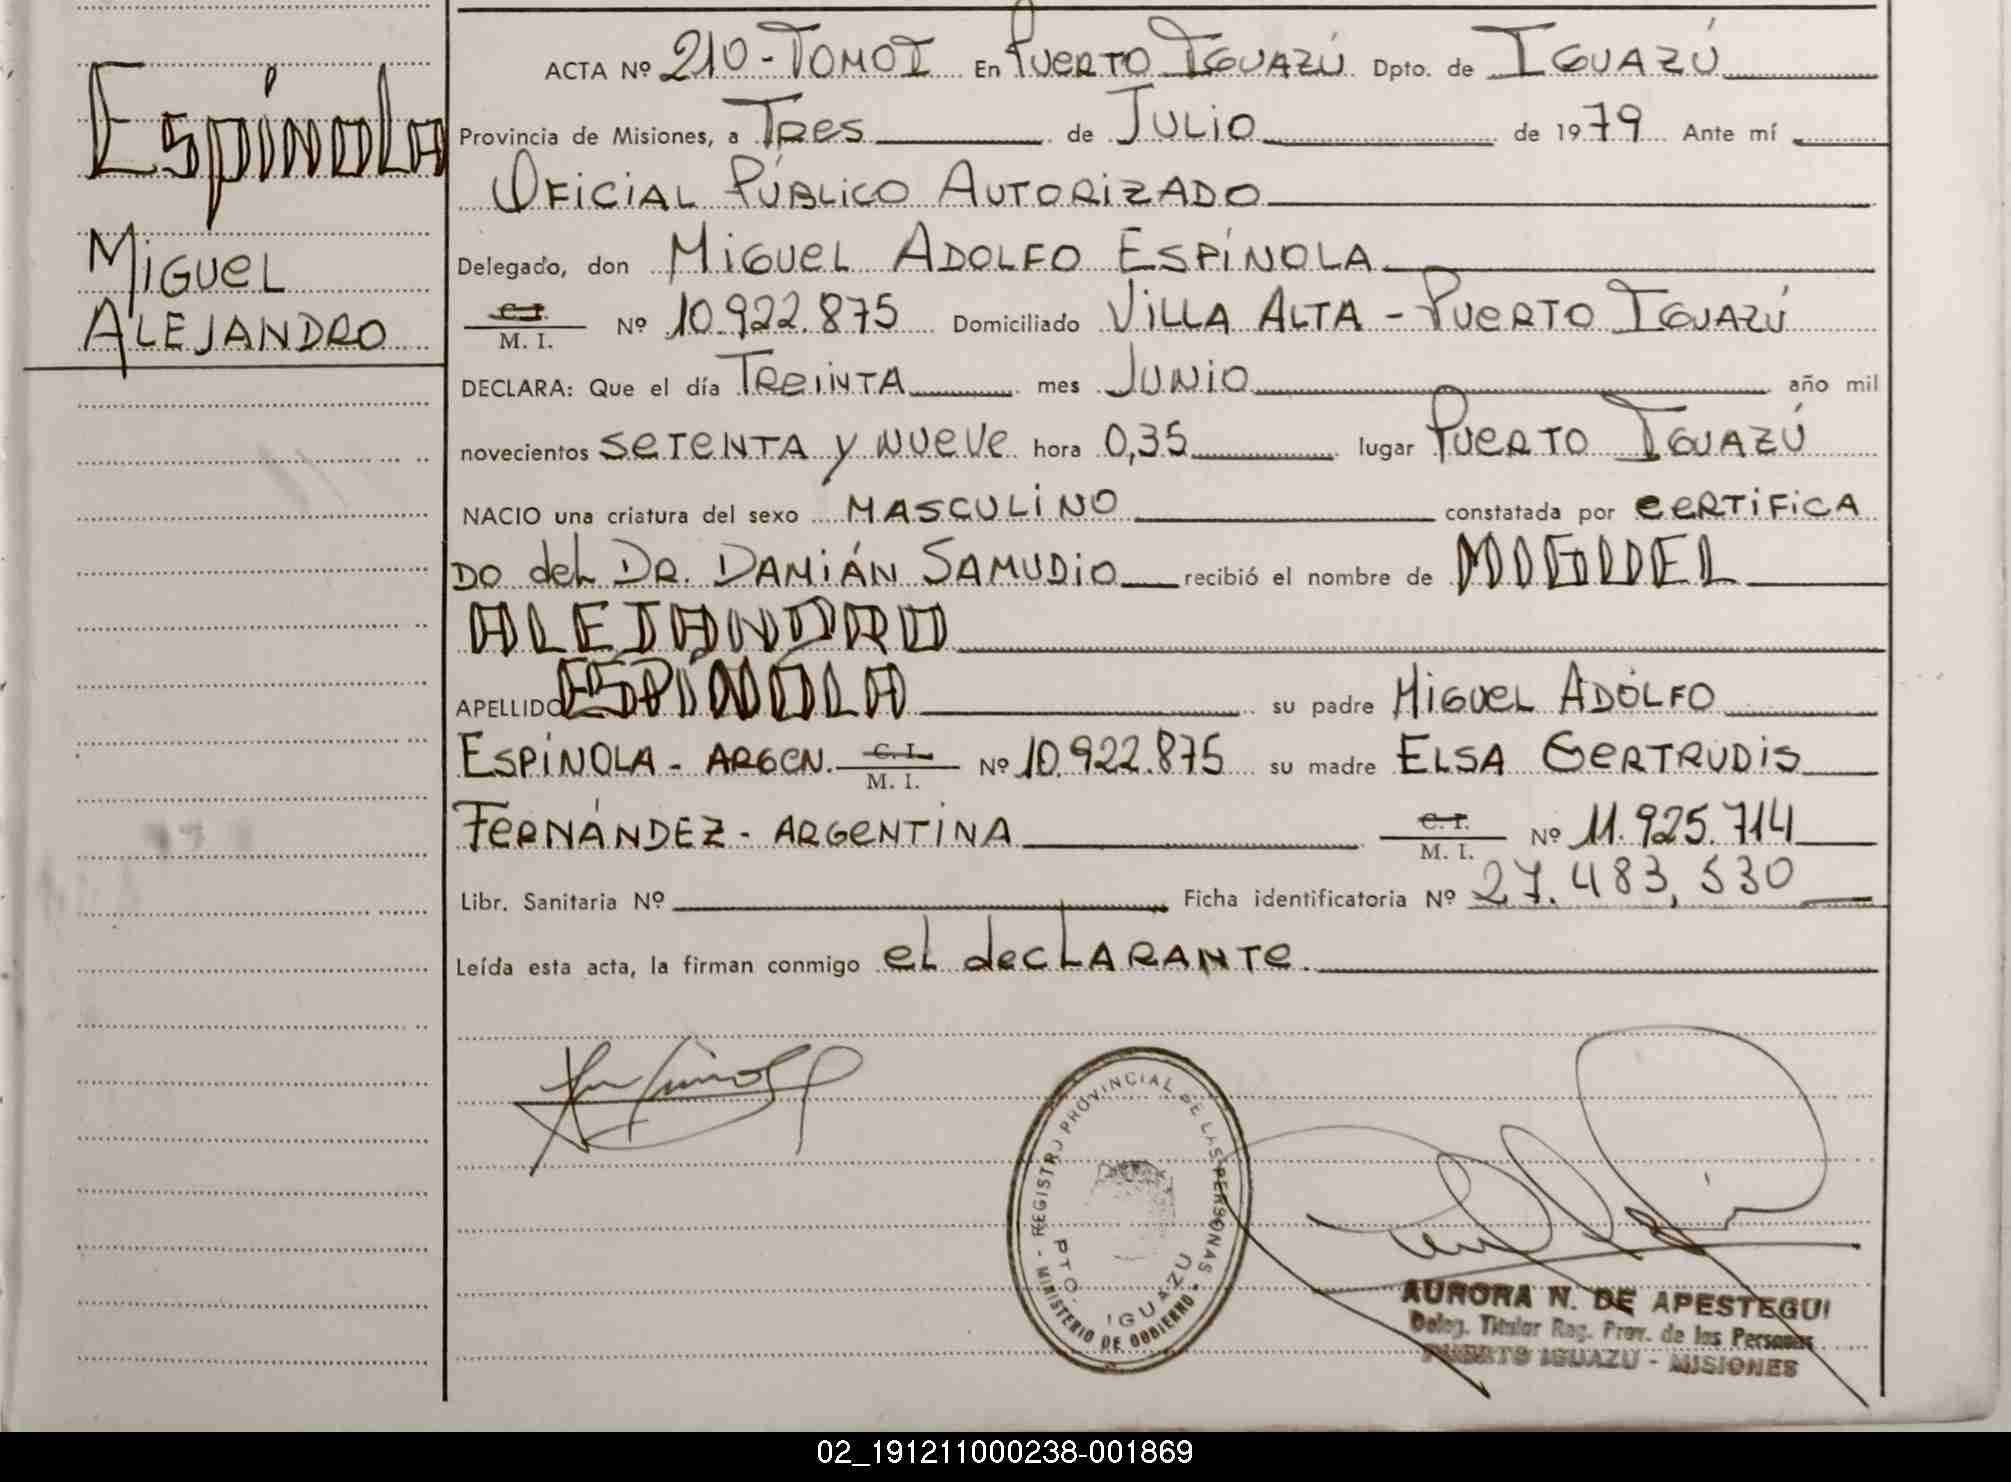 ACTA Nº 210 - TOMO I En PUERTO IGUAZÚ Dpto. de IGUAZÚ
Provincia de Misiones, a TRES de JULIO de 1979 Ante mí
OFICIAL PÚBLICO AUTORIZADO
Delegado, don MIGUEL ADOLFO ESPÍNOLA
C.I. M. I. Nº 10.922.875 Domiciliado VILLA ALTA - PUERTO IGUAZÚ
DECLARA: Que el día TREINTA mes JUNIO año mil
novecientos SETENTA Y NUEVE hora 0,35 lugar PUERTO IGUAZÚ
NACIO una criatura del sexo MASCULINO constatada por CERTIFICA
DO del DR. DAMIÁN SAMUDIO recibió el nombre de MIGUEL
ALEJANDRO
APELLIDO ESPÍNOLA su padre MIGUEL ADOLFO
ESPÍNOLA - ARGEN. C.I. M. I. Nº 10.922.875 su madre ELSA GERTRUDIS
FERNÁNDEZ - ARGENTINA C.I. M. I. Nº 11.925.714
Libr. Sanitaria Nº Ficha identificatoria Nº 27.483,530
Leída esta acta, la firman conmigo el decLARANTE.
ESPÍNOLA
MIGUEL
ALEJANDRO
REGISTRO PROVINCIAL DE LAS PERSONAS
- MINISTERIO DE GOBIERNO -
PTO. IGUAZU
AURORA N. DE APESTEGUI
Deleg. Titular Reg. Prov. de las Personas
PUERTO IGUAZU - MISIONES
02_191211000238-001869